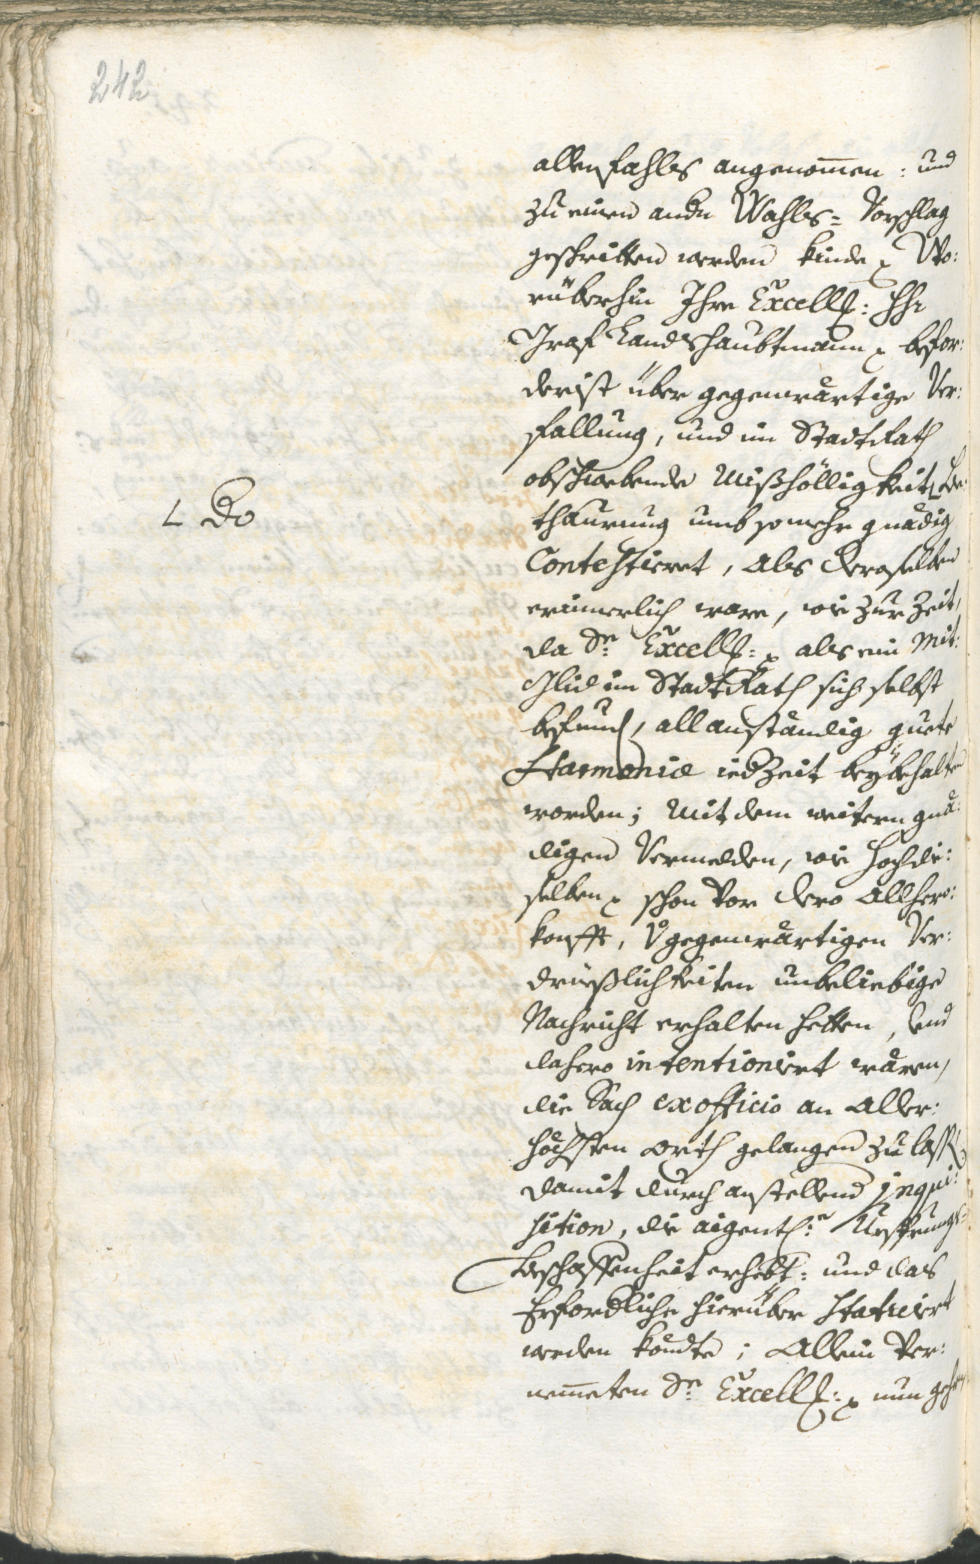 242
allenfahls angenom̄en: und
zu einen andn Wahls= Vorschlag
geschritten werden kinde Wo:
rüberhin Ihre Excell:
Graf Landshaubtmann befor:
derist über gegenwärtige Ver:
fallung, und im StadtRath
obschwebende Mißhölligkeit
L Do
thaurung umb somehr gnädig
Contestieret, als deroselben
erinnerlich ware, wie zur Zeit,
da Sr Excell: als ein Mit:
glid im StadtRath sich selbst
befund, all anständig guete
Harmonie iedZeit beybehalten
worden; Mit dem weitern gnä:
digen Vermelden, wie hochdie:
selben schon vor dero Allhero:
konfft, gegenwärtigen Ver:
drüeßlichkeiten unbeliebige
Nachricht erhalten hetten, und
dahero intentioniert wären,
die Sach ex officio an Aller:
höchsten orth gelangen zu lassen
damit durch anstellend inqui:
sition, die aigenthe Ursprungs=
Beschaffenheit erhebt: und das
Erfordliche hierüber statuiert
werden kondte; Allein Ver:
nemmeten Sr Excell: nun